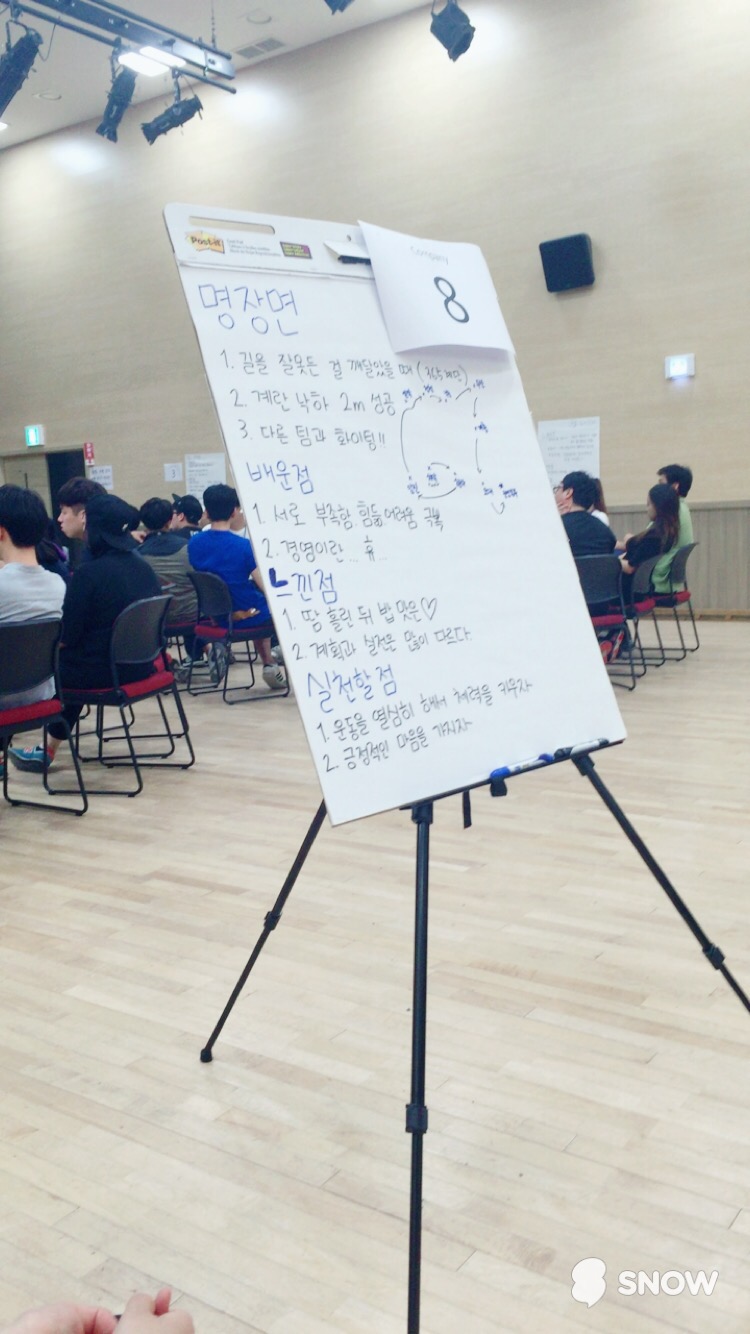 Post-it
Company
8
명장면
1. 길을 잘못든 걸 깨달았을 때
2. 계란 낙하 2m 성공
3. 다른 팀과 화이팅!!
배운점
1. 서로 부족함 힘듦 어려움 극복
2. 경영이란... 휴...
느낀점
1. 땅 흘린 뒤 밥 맛은♡
2. 계획과 실전은 많이 다르다
실천할점
1. 운동을 열심히 해서 체력을 키우자
2. 긍정적인 마음을 가지자
SNOW